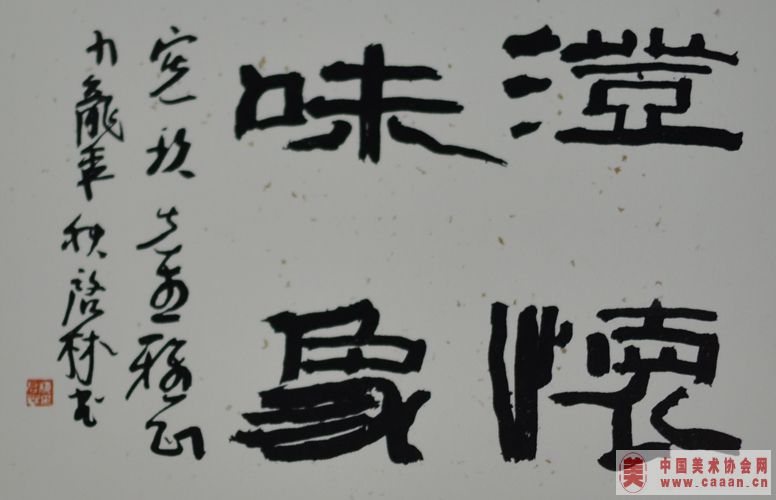 澄懷
味象
先生雅正
龍年秋啓林书
中国美术协会网
www.caaan.cn